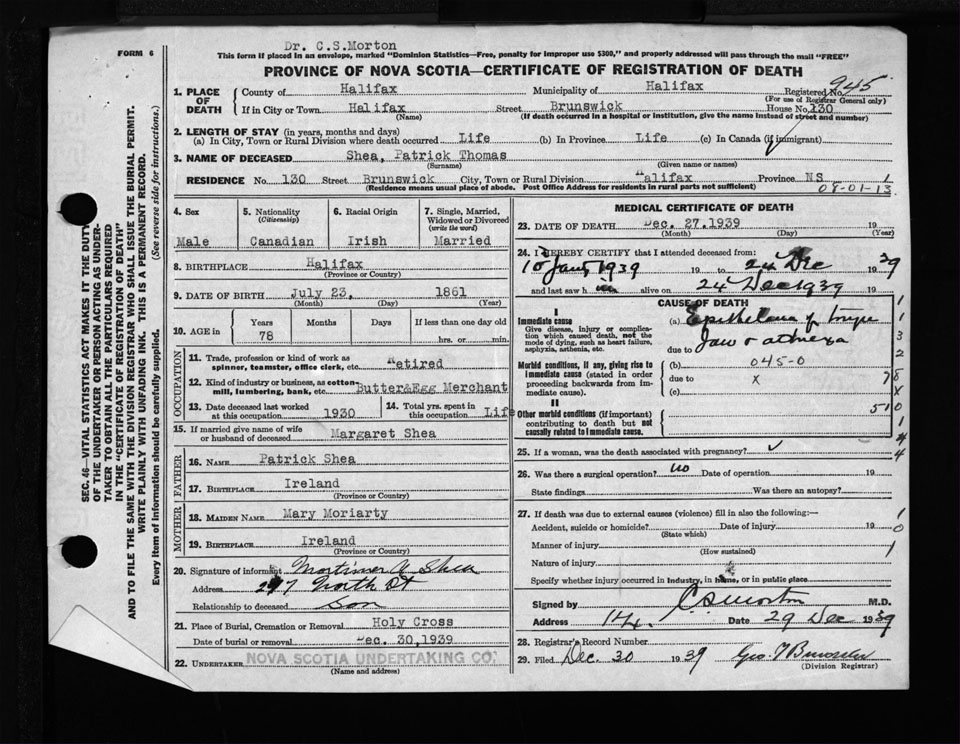 Dr. C.S.Morton
FORM 6
This form if placed in an envelope, marked "Dominion Statistics—Free, penalty for improper use $300," and properly addressed will pass through the mail "FREE"
PROVINCE OF NOVA SCOTIA—CERTIFICATE OF REGISTRATION OF DEATH
945
1. PLACE OF DEATH
County of Halifax Municipality of Halifax Registered No.
(For use of Registrar General only)
If in City or Town Halifax Street Brunswick House No. 130
(Name) (If death occurred in a hospital or institution, give the name instead of street and number)
2. LENGTH OF STAY (in years, months and days)
(a) In City, Town or Rural Division where death occurred Life (b) In Province Life (c) In Canada (if immigrant)
3. NAME OF DECEASED Shea, Patrick Thomas
(Surname) (Given name or names)
RESIDENCE No. 130 Street Brunswick City, Town or Rural Division Halifax Province NS 1
(Residence means usual place of abode. Post Office Address for residents in rural parts not sufficient) 08-01-13
SEC. 46—VITAL STATISTICS ACT MAKES IT THE DUTY
OF THE UNDERTAKER OR PERSON ACTING AS UNDER-
TAKER TO OBTAIN ALL THE PARTICULARS REQUIRED
IN THE "CERTIFICATE OF REGISTRATION OF DEATH"
AND TO FILE THE SAME WITH THE DIVISION REGISTRAR WHO SHALL ISSUE THE BURIAL PERMIT.
WRITE PLAINLY WITH UNFADING INK. THIS IS A PERMANENT RECORD.
Every item of information should be carefully supplied. (See reverse side for instructions.)
4. Sex
Male
5. Nationality
(Citizenship)
Canadian
6. Racial Origin
Irish
7. Single, Married, Widowed or Divorced
(write the word)
Married
8. BIRTHPLACE Halifax
(Province or Country)
9. DATE OF BIRTH July 23, 1861
(Month) (Day) (Year)
10. AGE in
Years Months Days If less than one day old
78 hrs. or min.
OCCUPATION
11. Trade, profession or kind of work as
spinner, teamster, office clerk, etc. Retired
12. Kind of industry or business, as cotton
mill, lumbering, bank, etc Butter&Egg Merchant
13. Date deceased last worked
at this occupation 1930
14. Total yrs. spent in
this occupation Life
15. If married give name of wife
or husband of deceased Margaret Shea
FATHER
16. Name Patrick Shea
17. Birthplace Ireland
(Province or Country)
MOTHER
18. Maiden Name Mary Moriarty
19. Birthplace Ireland
(Province or Country)
20. Signature of informant Mortimer A Shea
Address North St
Relationship to deceased Son
21. Place of Burial, Cremation or Removal Holy Cross
Date of burial or removal Dec. 30,1939
22. Undertaker NOVA SCOTIA UNDERTAKING CO.
(Name and address)
MEDICAL CERTIFICATE OF DEATH
23. DATE OF DEATH Dec. 27.1939 19
(Month) (Day) (Year)
24. I HEREBY CERTIFY that I attended deceased from:
10 Jan 1939 19 to 24 Dec 1939
and last saw h m alive on 24 Dec 1939
CAUSE OF DEATH
I
Immediate cause
Give disease, injury or complica-
tion which caused death, not the
mode of dying, such as heart failure,
asphyxia, asthenia, etc.
(a) Epithelioma of
due to Jaw
Morbid conditions, if any, giving rise to
Immediate cause (stated in order
proceeding backwards from im-
mediate cause).
(b) 045-0
due to x
(c)
II
Other morbid conditions (if important)
contributing to death but not
causally related to Immediate cause.
25. If a woman, was the death associated with pregnancy?
26. Was there a surgical operation? no Date of operation 19
State findings Was there an autopsy?
27. If death was due to external causes (violence) fill in also the following:—
Accident, suicide or homicide? Date of injury 19
(State which)
Manner of injury
(How sustained)
Nature of injury
Specify whether injury occurred in industry, in home, or in public place
Signed by C S Morton M.D.
Address Date 29 Dec 1939
28. Registrar's Record Number
29. Filed Dec. 30 1939
(Division Registrar)